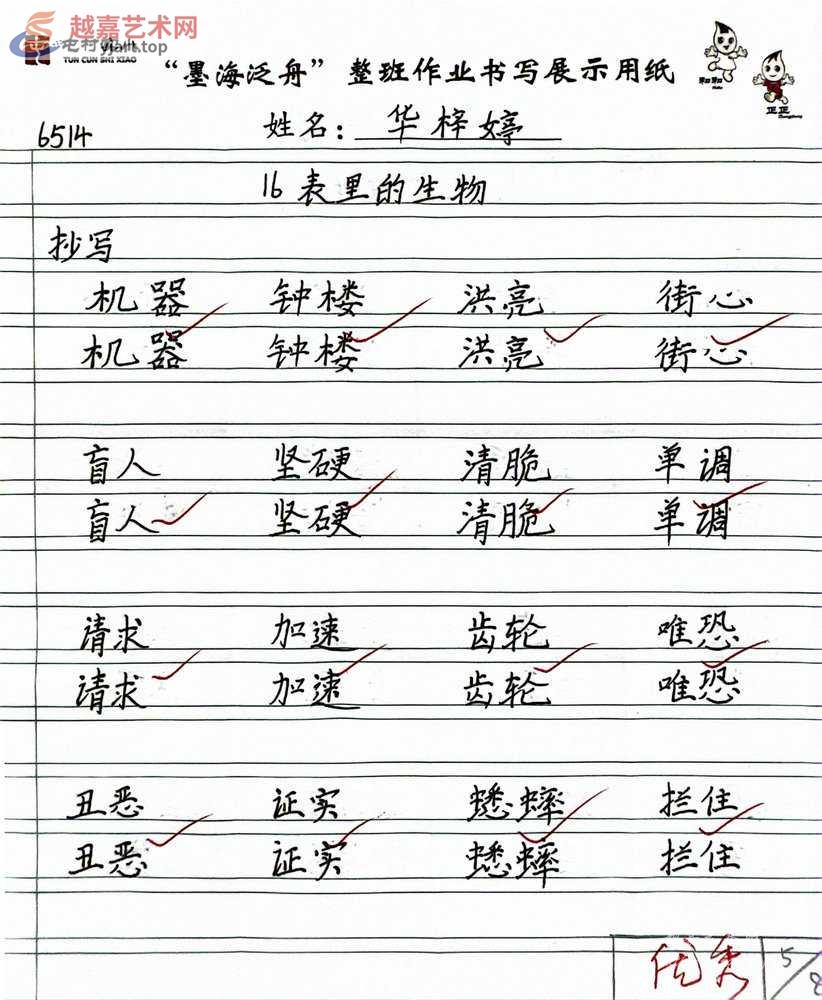 越嘉艺术网
yjart.top
TUN CUN SHI XIAO
“墨海泛舟”整班作业书写展示用纸
和和
正正
6514
姓名：华梓婷
16表里的生物
抄写
机器 钟楼 洪亮 街心
机器 钟楼 洪亮 街心
盲人 坚硬 清脆 单调
盲人 坚硬 清脆 单调
请求 加速 齿轮 唯恐
请求 加速 齿轮 唯恐
丑恶 证实 蟋蟀 拦住
丑恶 证实 蟋蟀 拦住
优秀 5/8